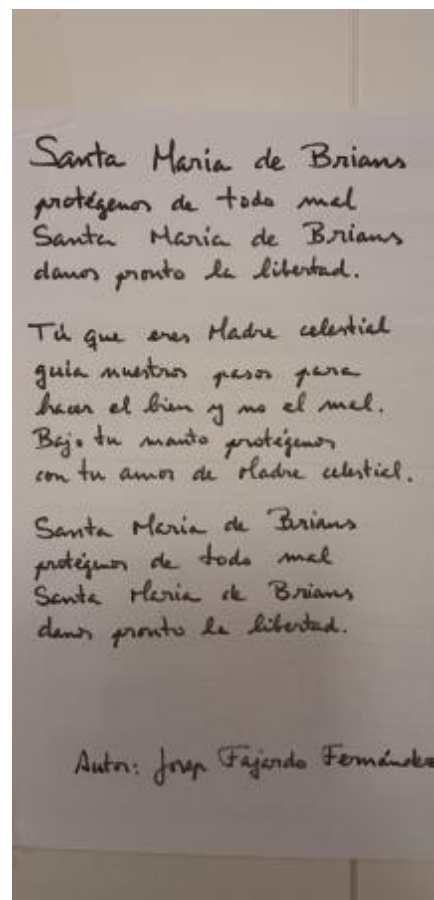 Santa Maria de Brians
protégenos de todo mal
Santa Maria de Brians
danos pronto la libertad.
Tú que eres Madre celestial
guia nuestros pasos para
hacer el bien y no el mal.
Bajo tu manto protégenos
con tu amor de Madre celestial.
Santa Maria de Brians
protégenos de todo mal
Santa Maria de Brians
danos pronto la libertad.
Autor: Josep Fajardo Fernández